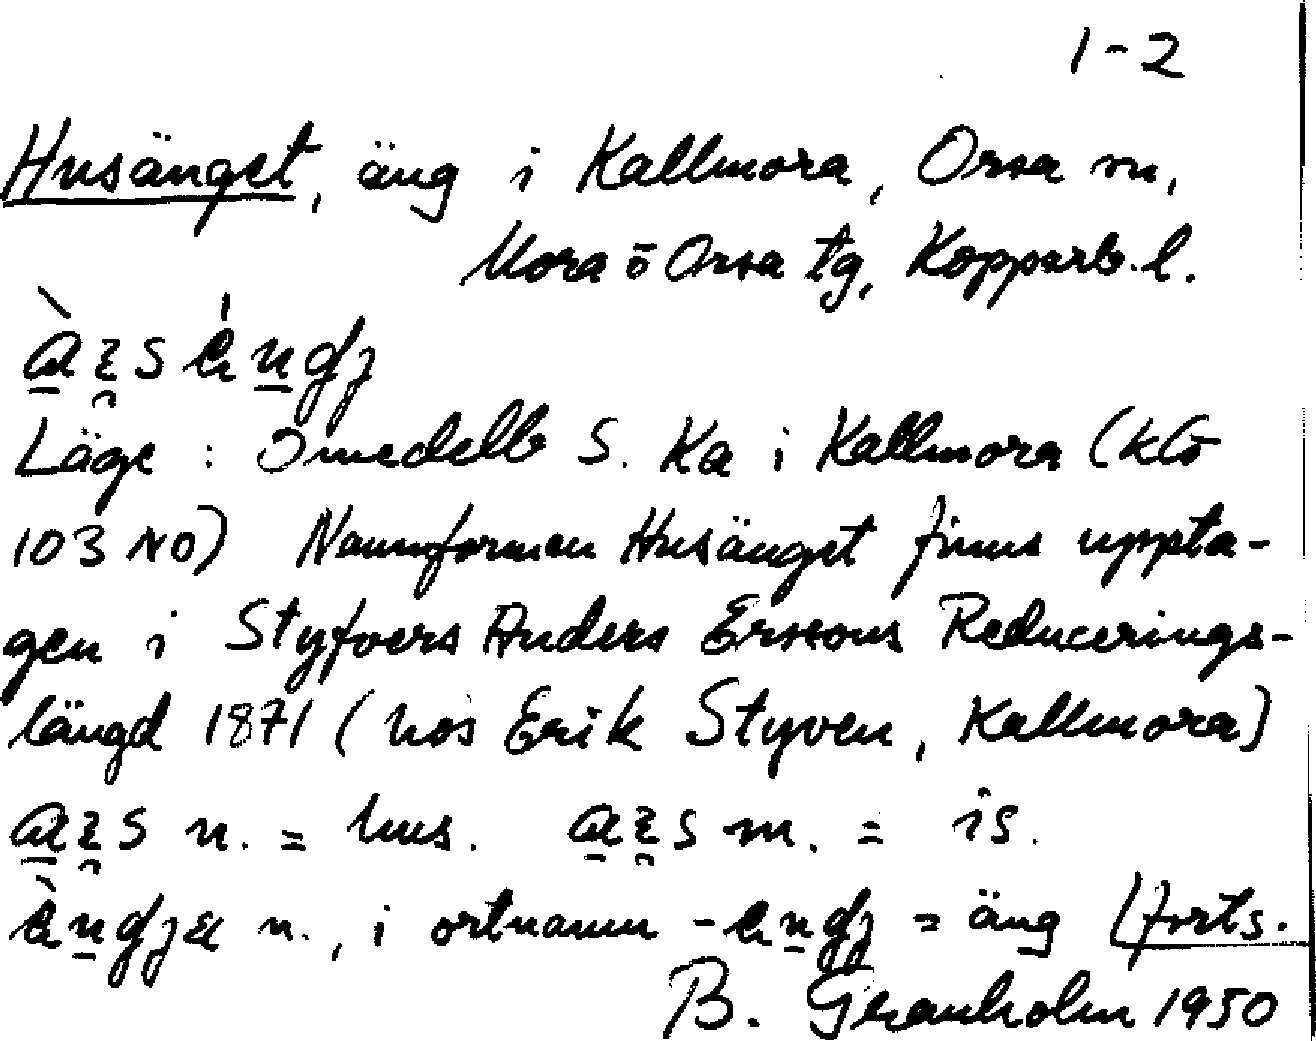 1-2
Husänget, äng i Kallmora, Orsa sn,
Mora o Orsa tg, Kopparb. l.
Läge: Omedelb S. Ka i Kallmora (kb
103 NO) Namnformen Husänget finns uppta-
gen i Styfvers Anders Erssons Reducerings-
längd 1871 (hos Erik Styven, Kallmora)
n. = hus. m. = is.
n., i ortnamn = äng (forts.
B. Granholm 1950